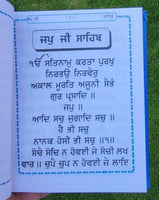 ਜਪੁ ਜੀ (੧) ਸਾਹਿਬ
ਜਪੁ ਜੀ ਸਾਹਿਬ
ੴ ਸਤਿਨਾਮੁ ਕਰਤਾ ਪੁਰਖੁ
ਨਿਰਭਉ ਨਿਰਵੈਰੁ
ਅਕਾਲ ਮੂਰਤਿ ਅਜੂਨੀ ਸੈਭੰ
ਗੁਰ ਪ੍ਰਸਾਦਿ ॥
ਜਪੁ ॥
ਆਦਿ ਸਚੁ ਜੁਗਾਦਿ ਸਚੁ ॥
ਹੈ ਭੀ ਸਚੁ
ਨਾਨਕ ਹੋਸੀ ਭੀ ਸਚੁ ॥੧॥
ਸੋਚੈ ਸੋਚਿ ਨ ਹੋਵਈ ਜੇ ਸੋਚੀ ਲਖ
ਵਾਰ ॥ ਚੁਪੈ ਚੁਪ ਨ ਹੋਵਈ ਜੇ ਲਾਇ